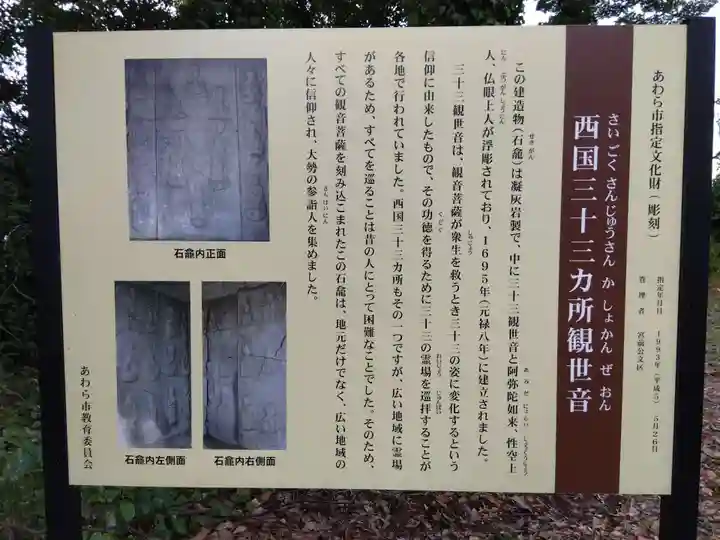 あわら市指定文化財（彫刻）
さいごくさんじゅうさんかしょかんぜおん
西国三十三カ所観世音
指定年月日　1993年（平成5）5月26日
管理者　宮前公文区
この建造物（石龕）は凝灰岩製で、中に三十三観世音と阿弥陀如来、性空上
人、仏眼上人が浮彫されており、1695年（元禄八年）に建立されました。
三十三観世音は、観音菩薩が衆生を救うとき三十三の姿に変化するという
信仰に由来したもので、その功徳を得るために三十三の霊場を巡拝することが
各地で行われていました。西国三十三カ所もその一つですが、広い地域に霊場
があるため、すべてを巡ることは昔の人にとって困難なことでした。そのため、
すべての観音菩薩を刻み込こまれたこの石龕は、地元だけでなく、広い地域の
人々に信仰され、大勢の参詣人を集めました。
石龕内正面
石龕内左側面
石龕内右側面
あわら市教育委員会